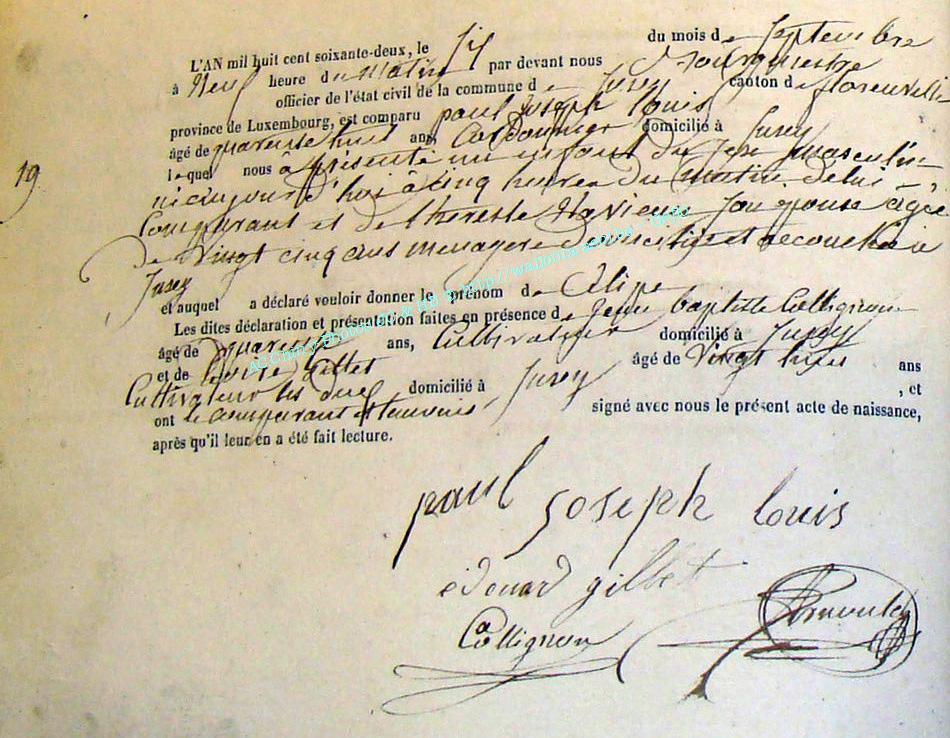 L'AN mil huit cent soixante-deux, le Six du mois de Septembre
à Neuf heure du Matin par devant nous Bourgmestre
officier de l'état civil de la commune de Jusey canton de florenville
province de Luxembourg, est comparu paul joseph louis
âgé de quarante huit ans Cordonnier domicilié à Jusey
lequel nous à présenté un enfant du Sexe masculin
19
né aujourd'hui à cinq heures du matin de lui
Comparant et de therese Son épouse âgée
de Vingt cinq ans menagere domiciliée et accouchée à
Jusey
et auquel a déclaré vouloir donner le prénom de
Les dites déclaration et présentation faites en présence de jean baptiste Collignon
âgé de quarante ans, Cultivateur domicilié à Jusey
et de âgé de Vingt huit ans
Cultivateur les domicilié à Jusey , et
ont le comparant et temoins signé avec nous le présent acte de naissance,
après qu'il leur en a été fait lecture.
paul joseph louis
édouard gillet
Collignon